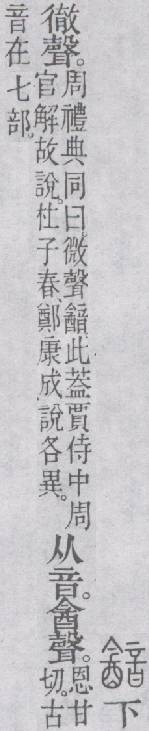 韽下
徹聲。周禮典同曰。微聲韽。此葢賈侍中周官解故說。杜子春、鄭康成說各異。从音。酓聲。恩甘切。古
音在七部。